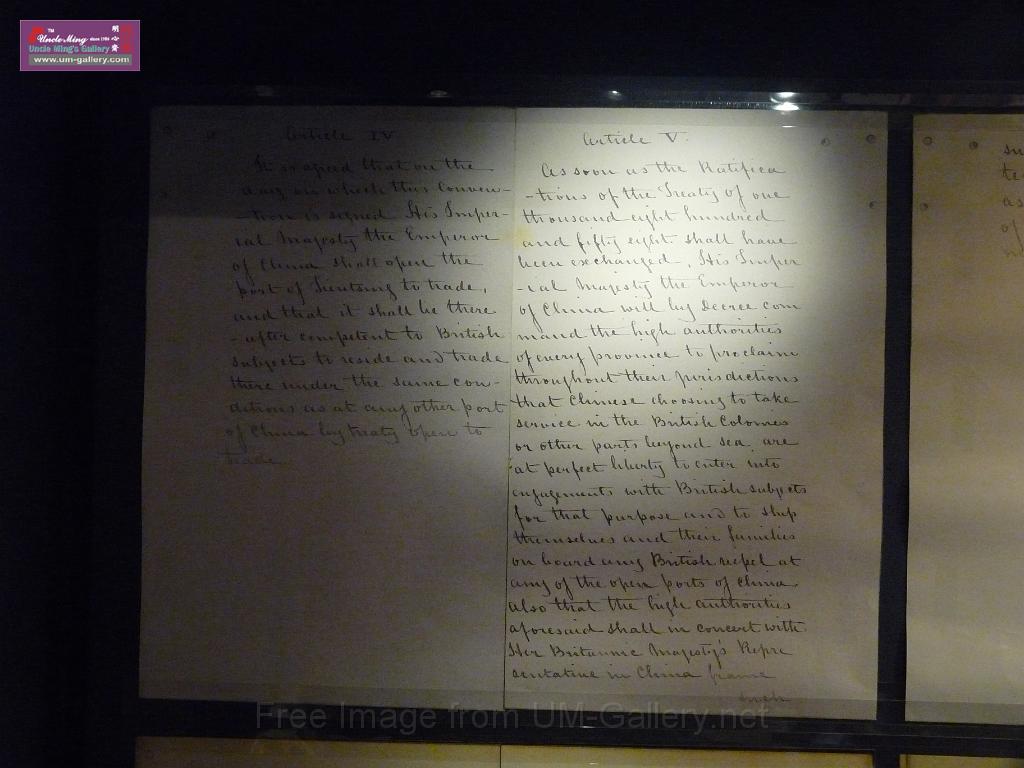 Uncle Ming since 1986
Uncle Ming's Gallery
www.um-gallery.com
Article IV
It is agreed that on the
day on which this Conven-
-tion is signed His Imper-
ial Majesty the Emperor
of China shall open the
port of Tientsing to trade,
and that it shall be there
-after competent to British
subjects to reside and trade
there under the same con-
ditions as at any other port
of China by treaty open to
trade.
Article V.
As soon as the Ratifica
-tions of the Treaty of one
thousand eight hundred
and fifty eight shall have
been exchanged, His Imper
-ial Majesty the Emperor
of China will by Decree com
mand the high authorities
of every province to proclaim
throughout their jurisdictions
that Chinese choosing to take
service in the British Colonies
or other parts beyond sea are
at perfect liberty to enter into
engagements with British subjects
for that purpose and to ship
themselves and their families
on board any British vessel at
any of the open ports of China
also that the high authorities
aforesaid shall in concert with
Her Britannic Majesty's Repre
sentative in China frame
such
as
of
Free Image from UM-Gallery.net